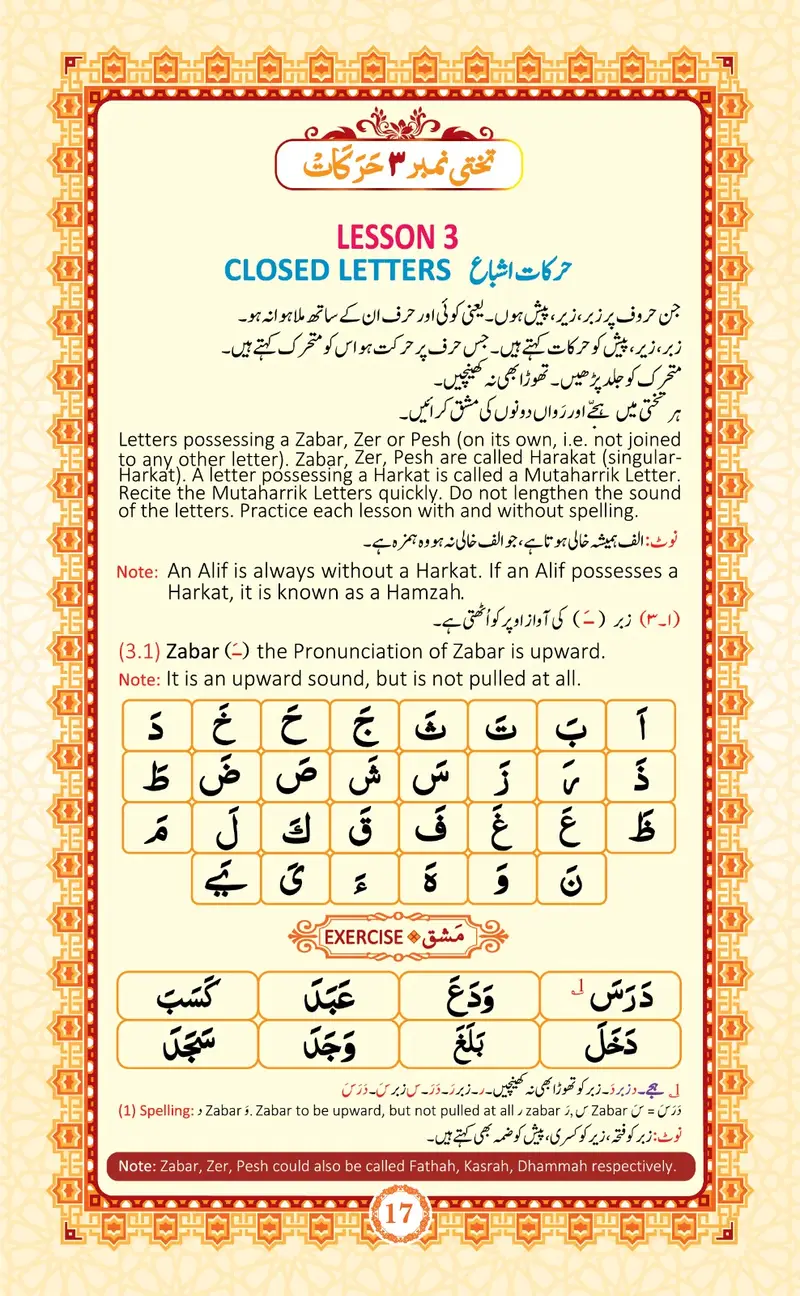 تختی نمبر ۳ حَرَکَاتْ
LESSON 3
CLOSED LETTERS حرکات اشباع
جن حروف پر زبر، زیر، پیش ہوں۔ یعنی کوئی اور حرف ان کے ساتھ ملا ہوا نہ ہو۔
زبر، زیر، پیش کو حرکات کہتے ہیں۔ جس حرف پر حرکت ہو اس کو متحرک کہتے ہیں۔
متحرک کو جلد پڑھیں۔ تھوڑا بھی نہ کھینچیں۔
ہر تختی میں ہجّے اور رَواں دونوں کی مشق کرائیں۔
Letters possessing a Zabar, Zer or Pesh (on its own, i.e. not joined
to any other letter). Zabar, Zer, Pesh are called Harakat (singular-
Harkat). A letter possessing a Harkat is called a Mutaharrik Letter.
Recite the Mutaharrik Letters quickly. Do not lengthen the sound
of the letters. Practice each lesson with and without spelling.
نوٹ: الف ہمیشہ خالی ہوتا ہے، جو الف خالی نہ ہو وہ ہمزہ ہے۔
Note: An Alif is always without a Harkat. If an Alif possesses a
Harkat, it is known as a Hamzah.
(۳۔۱) زبر (ـَـ) کی آواز اوپر کو اُٹھتی ہے۔
(3.1) Zabar (ـَـ) the Pronunciation of Zabar is upward.
Note: It is an upward sound, but is not pulled at all.
اَ بَ تَ ثَ جَ حَ خَ دَ
ذَ رَ زَ سَ شَ صَ ضَ طَ
ظَ عَ غَ فَ قَ كَ لَ مَ
نَ وَ هَ ءَ یَ یَے
EXERCISE مَشق
دَرَسَ ۱؎ وَدَعَ عَبَدَ كَسَبَ
دَخَلَ بَلَغَ وَجَدَ سَجَدَ
۱؎ ہجے۔ د زبر دَ۔ زبر کو تھوڑا بھی نہ کھینچیں۔ ر۔ زبر رَ۔ دَرَ۔ س زبر سَ۔ دَرَسَ
(1) Spelling: د Zabar دَ. Zabar to be upward, but not pulled at all ر zabar رَ, س Zabar سَ = دَرَسَ
نوٹ: زبر کو فتحہ، زیر کو کسری، پیش کو ضمہ بھی کہتے ہیں۔
Note: Zabar, Zer, Pesh could also be called Fathah, Kasrah, Dhammah respectively.
17